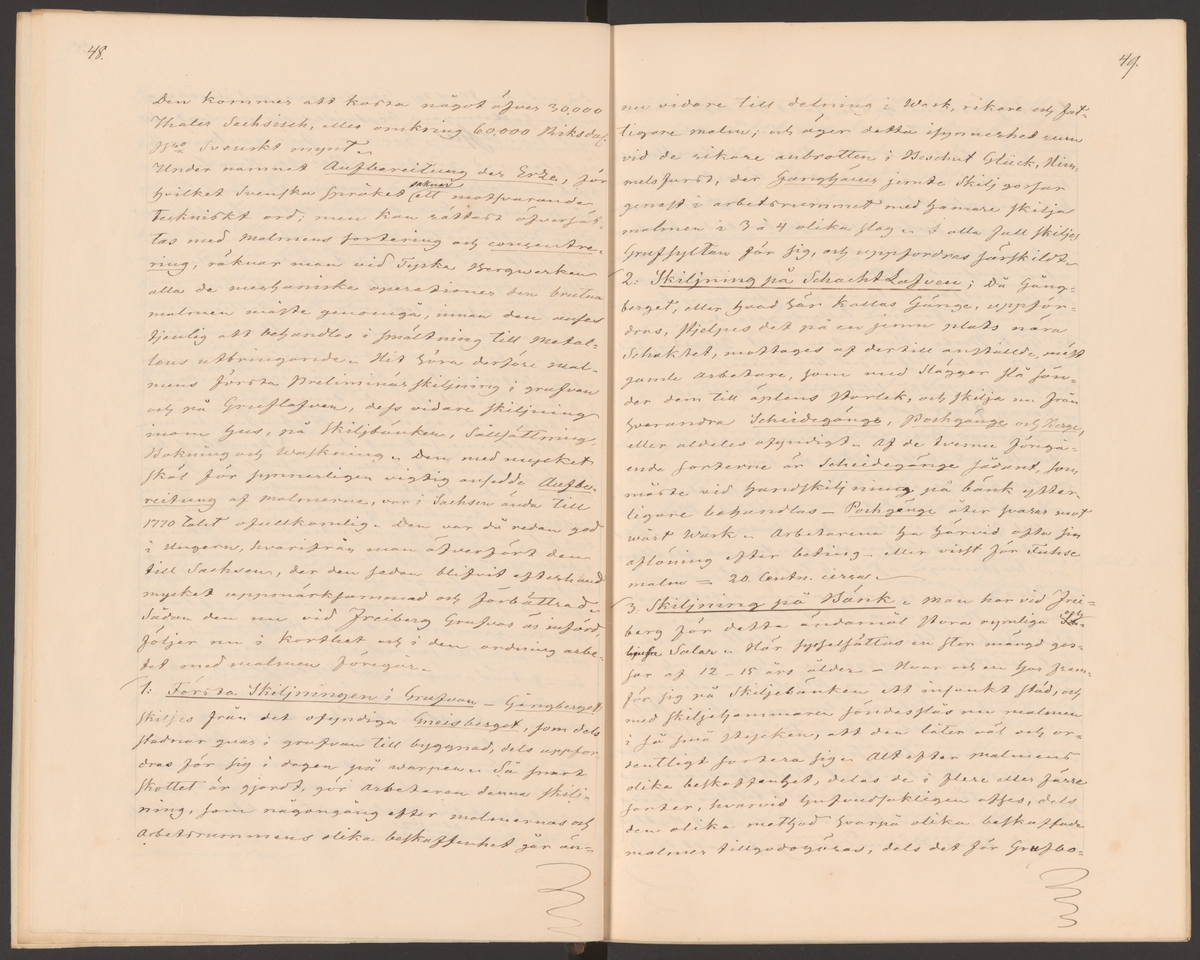 48.
Den kommer att kosta något öfver 30,000
Thaler Sächsisch, eller omkring 60,000 Riksdal.
B:co Svenskt mynt.
Under namnet Aufbereitung der Erze, för
hvilket Svenska Språket saknar ett motsvarande
tekniskt ord; men kan rättast öfversät-
tas med Malmens sortering och concentre-
ring, räknar man vid Tyska Bergwerken
alla de mechaniska operationer den brutna
malmen måste genomgå, innan den anses
tjenlig att behandlas i smältning till Metal-
lens utbringande. Hit höra derföre mal-
mens första Preliminär skiljning i grufvan
och på Gruflafven, dess vidare skiljning
inom hus, på skiljbänken, Sållsättning,
Bokning och Waskning. Den med mycket
skäl för synnerligen vigtig ansedda Aufbe-
reitung af malmerne, var i Sachsen ända till
1770 talet ofullkomlig. Den var då redan god
i Ungern, hvarifrån man öfverfört den
till Sachsen, der den sedan blifvit efterhand
mycket uppmärksammad och förbättrad.
Sådan den nu vid Freiberg Grufvor är införd,
följer nu i korthet och i den ordning arbe-
tet med malmen föregår.
1: Första Skiljningen i Grufvan – Gångberget
skiljes från det ofyndiga Gneisberget, som dels
stadnar qvar i grufvan till byggnad, dels uppfor-
dras för sig i dagen på warpen. Så snart
Skottet är gjordt, gör arbetaren denna skilj-
ning, som någongång efter malmernas och
Arbetsrummens olika beskaffenhet går än-
49.
nu vidare till delning i Wask, rikare och fat-
tigare malm; och äger detta isynnerhet rum
vid de rikare anbrotten i Beschert Glück, Him-
melsfurst, der Ganghäuer jemte Skiljgossar
genast i arbetsrummet med hamare skilja
malmen i 3 à 4 olika slag. I alla fall skiljes
Grufsyltan för sig, och uppfordras särskildt.
2: Skiljning på Schacht Lafven; Då Gång-
berget, eller hvad här kallas Gänge, uppfor-
dras, stjelpes det på en jemn plats nära
Schaktet, mottages af dertill anställde, mäst
gamla arbetare, som med Slägger slå sön-
der dem till äplens storlek, och skilja nu från
hvarandra Scheidegänge, Pochgänge och Berge,
eller aldeles ofyndigt. Af de tvenne föregå-
ende sorterne är Scheidegänge sådant, som
måste vid handskiljning på bänk ytter-
ligare behandlas – Pochgänge åter svarar mot
wårt Wask. Arbetarena ha härvid ofta sin
aflöning efter beting – eller visst för Fuhre
malm = 20. Centn. circa.
3. Skiljning på Bänk. Man har vid Frei-
berg för detta ändamål stora rymliga och
ljusa Salar. Här sysselsättas en stor mängd gos-
sar af 12 – 15 års ålder – Hvar och en har fram-
för sig på Skiljebänken ett insänkt städ, och
med skiljehammaren söndesslås nu malmen
i så små stycken, att den låter väl och or-
dentligt sortera sig. Allt efter malmens
olika beskaffenhet, delas de i flere eller färre
sorter, hvarvid hufvudsakligen afses, dels
den olika methad hvarpå olika beskaffade
malmer tillgodogöras, dels det för Grufbo-